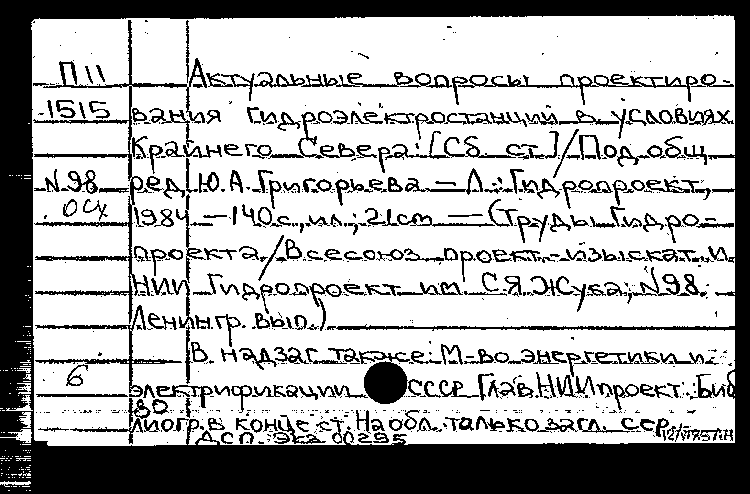 П11 Актуальные вопросы проектиро-
-1515 вания гидроэлектростанций в условиях
Крайнего Севера: [Сб. ст.] / Под общ.
N98 ред. Ю.А. Григорьева. — Л.: Гидропроект,
осх 1984. — 140 с., ил.; 21 cm — (Труды Гидро-
проекта / Всесоюз. проект.-изыскат. и
НИИ Гидропроект им. С.Я. Жука; N98.
Ленингр. вып.)
В надзаг. также: М-во энергетики и
6 электрификации СССР. ГлавНИИпроект. Биб
80
лиогр. в конце ст. На обл. только загл. сер.
ДСП. Экз 00295